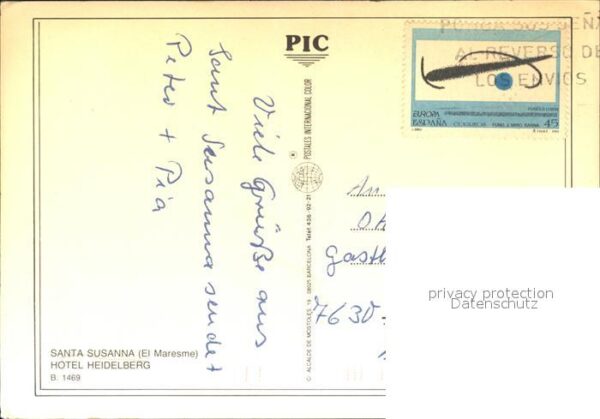 PIC
PONGA SUS SEÑ
AL REVERSO DE
LOS ENVIOS
EUROPA
ESPAÑA
45
Viele Grüße aus
Sant Susanna sendet
Peter + Pia
POSTALES INTERNACIONAL COLOR
C/. ALCALDE DE MOSTOLES, 19 - 08025 BARCELONA Teléf. 436-92-21
An
Gasth
7630-
privacy protection
Datenschutz
SANTA SUSANNA (El Maresme)
HOTEL HEIDELBERG
B. 1469